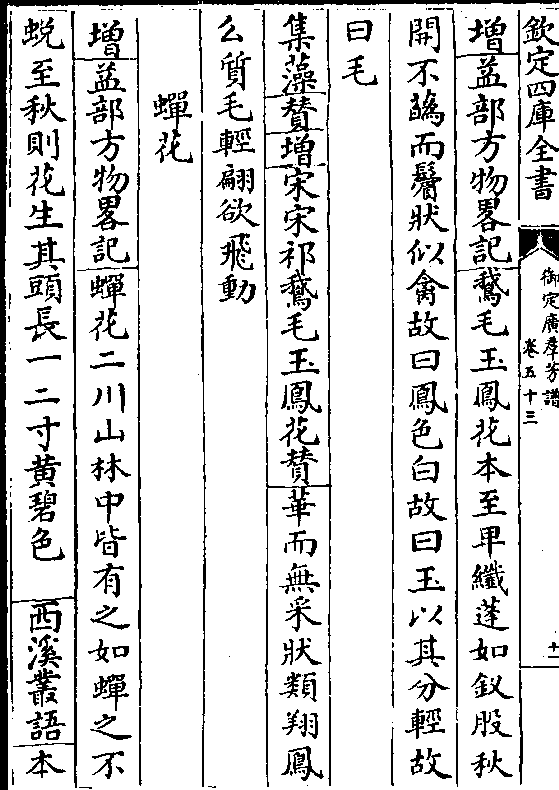 欽定四庫全書
御定廣羣芳譜
卷五十三
十一
增益部方物畧記鵞毛玉鳳花本至卑纖蓬如釵股秋
開不蘤而鬜狀似禽故曰鳳色白故曰玉以其分輕故
曰毛
集藻贊增宋宋祁鵞毛玉鳳花贊華而無采狀類翔鳳
么質毛輕翩欲飛動
蟬花
增益部方物畧記蟬花二川山林中皆有之如蟬之不
蛻至秋則花生其頭長一二寸黄碧色 西溪叢語本